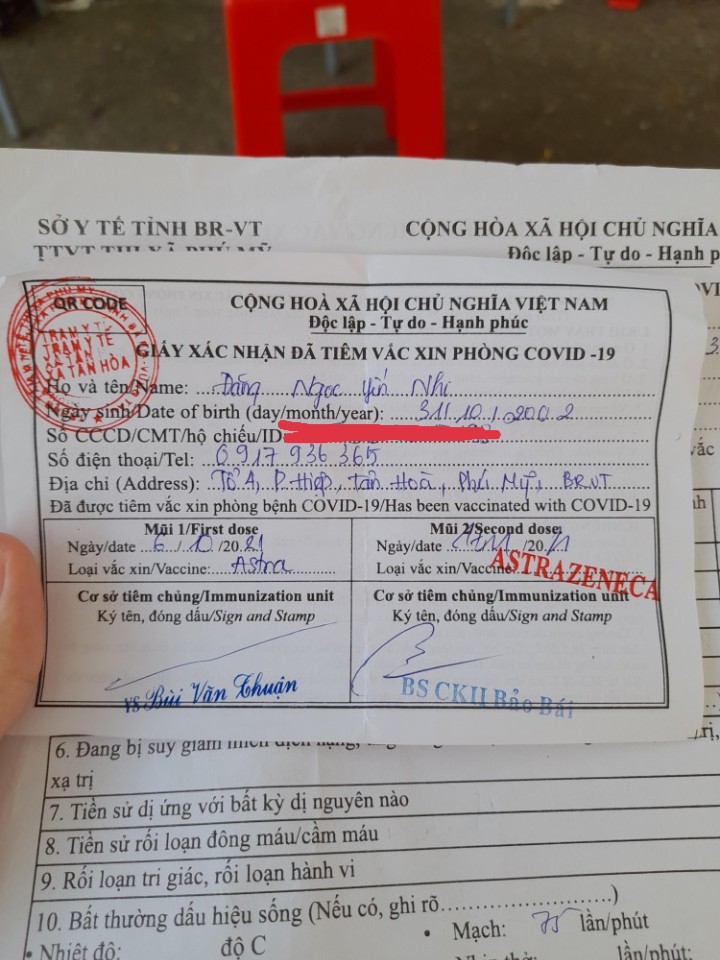 SỞ Y TẾ TỈNH BR-VT
CỘNG HÒA XÃ HỘI CHỦ NGHĨA
TTYT THỊ XÃ PHÚ MỸ
Độc lập - Tự do - Hạnh ph
QR CODE
TRẠM Y TẾ
XÃ TÂN HÒA
CỘNG HOÀ XÃ HỘI CHỦ NGHĨA VIỆT NAM
Độc lập - Tự do - Hạnh phúc
GIẤY XÁC NHẬN ĐÃ TIÊM VẮC XIN PHÒNG COVID -19
Họ và tên/Name: Đặng Ngọc Yến Nhi
Ngày sinh/Date of birth (day/month/year): 31/10/2002
Số CCCD/CMT/hộ chiếu/ID
Số điện thoại/Tel: 0917 936 365
Địa chỉ (Address): Tổ 4, P. Hiệp, Tân Hoà, Phú Mỹ, BRVT
Đã được tiêm vắc xin phòng bệnh COVID-19/Has been vaccinated with COVID-19
Mũi 1/First dose
Ngày/date 6/10/2021
Loại vắc xin/Vaccine: Astra
Cơ sở tiêm chủng/Immunization unit
Ký tên, đóng dấu/Sign and Stamp
YS Bùi Văn Thuận
Mũi 2/Second dose:
Ngày/date /20
Loại vắc xin/Vaccine: ASTRAZENECA
Cơ sở tiêm chủng/Immunization unit
Ký tên, đóng dấu/Sign and Stamp
BS CKII Bảo Bái
6. Đang bị suy giảm miễn dịch nặng,
xạ trị
7. Tiền sử dị ứng với bất kỳ dị nguyên nào
8. Tiền sử rối loạn đông máu/cầm máu
9. Rối loạn tri giác, rối loạn hành vi
10. Bất thường dấu hiệu sống (Nếu có, ghi rõ........................)
• Nhiệt độ: độ C
• Mạch: 75 lần/phút
lần/phút